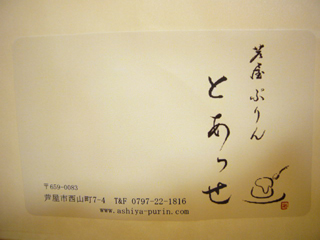 芦屋ぷりん
とあっせ
〒659-0083
芦屋市西山町7-4 T&F 0797-22-1816
www.ashiya-purin.com